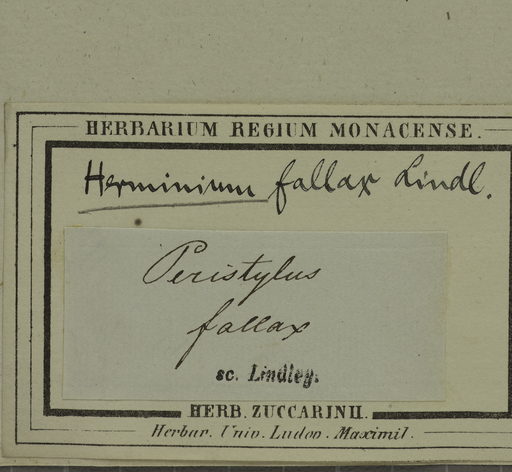 HERBARIUM REGIUM MONACENSE.
Herminium fallax Lindl.
Peristylus
fallax
sc. Lindley.
HERB. ZUCCARINII.
Herbar. Univ. Ludov. Maximil.